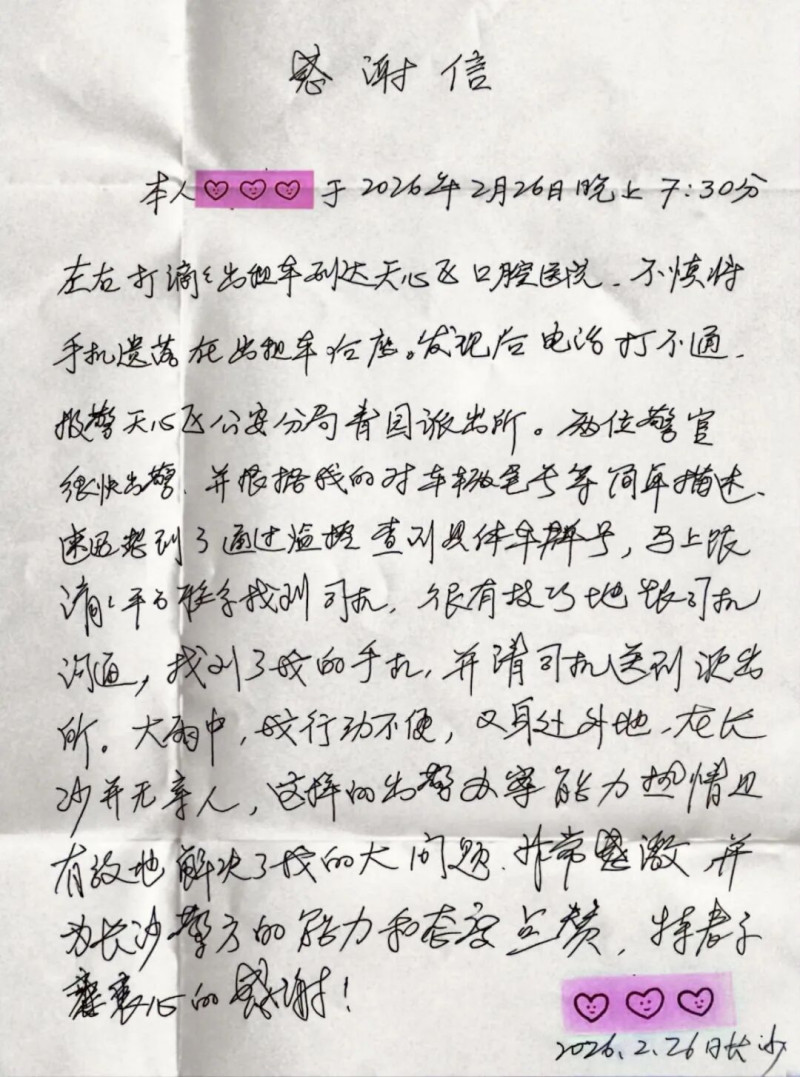 感谢信
本人 于2026年2月26日晚上7:30分
左右打滴滴出租车到达天心区口腔医院.不慎将
手机遗落在出租车后座。发现后电话打不通.
报警天心区公安分局青园派出所。两位警官
很快出警.并根据我的对车辆尾号等简单描述.
迅速想到了通过监控查到具体车牌号,马上跟
滴滴平台联系找到司机.很有技巧地跟司机
沟通,找到了我的手机,并请司机送到派出
所。大雨中,我行动不便,又身处外地.在长
沙并无亲人,这样的出警办案能力热情且
有效地解决了我的大问题.非常感激.并
为长沙警方的能力和态度点赞,
衷心的感谢!
2026.2.26日长沙